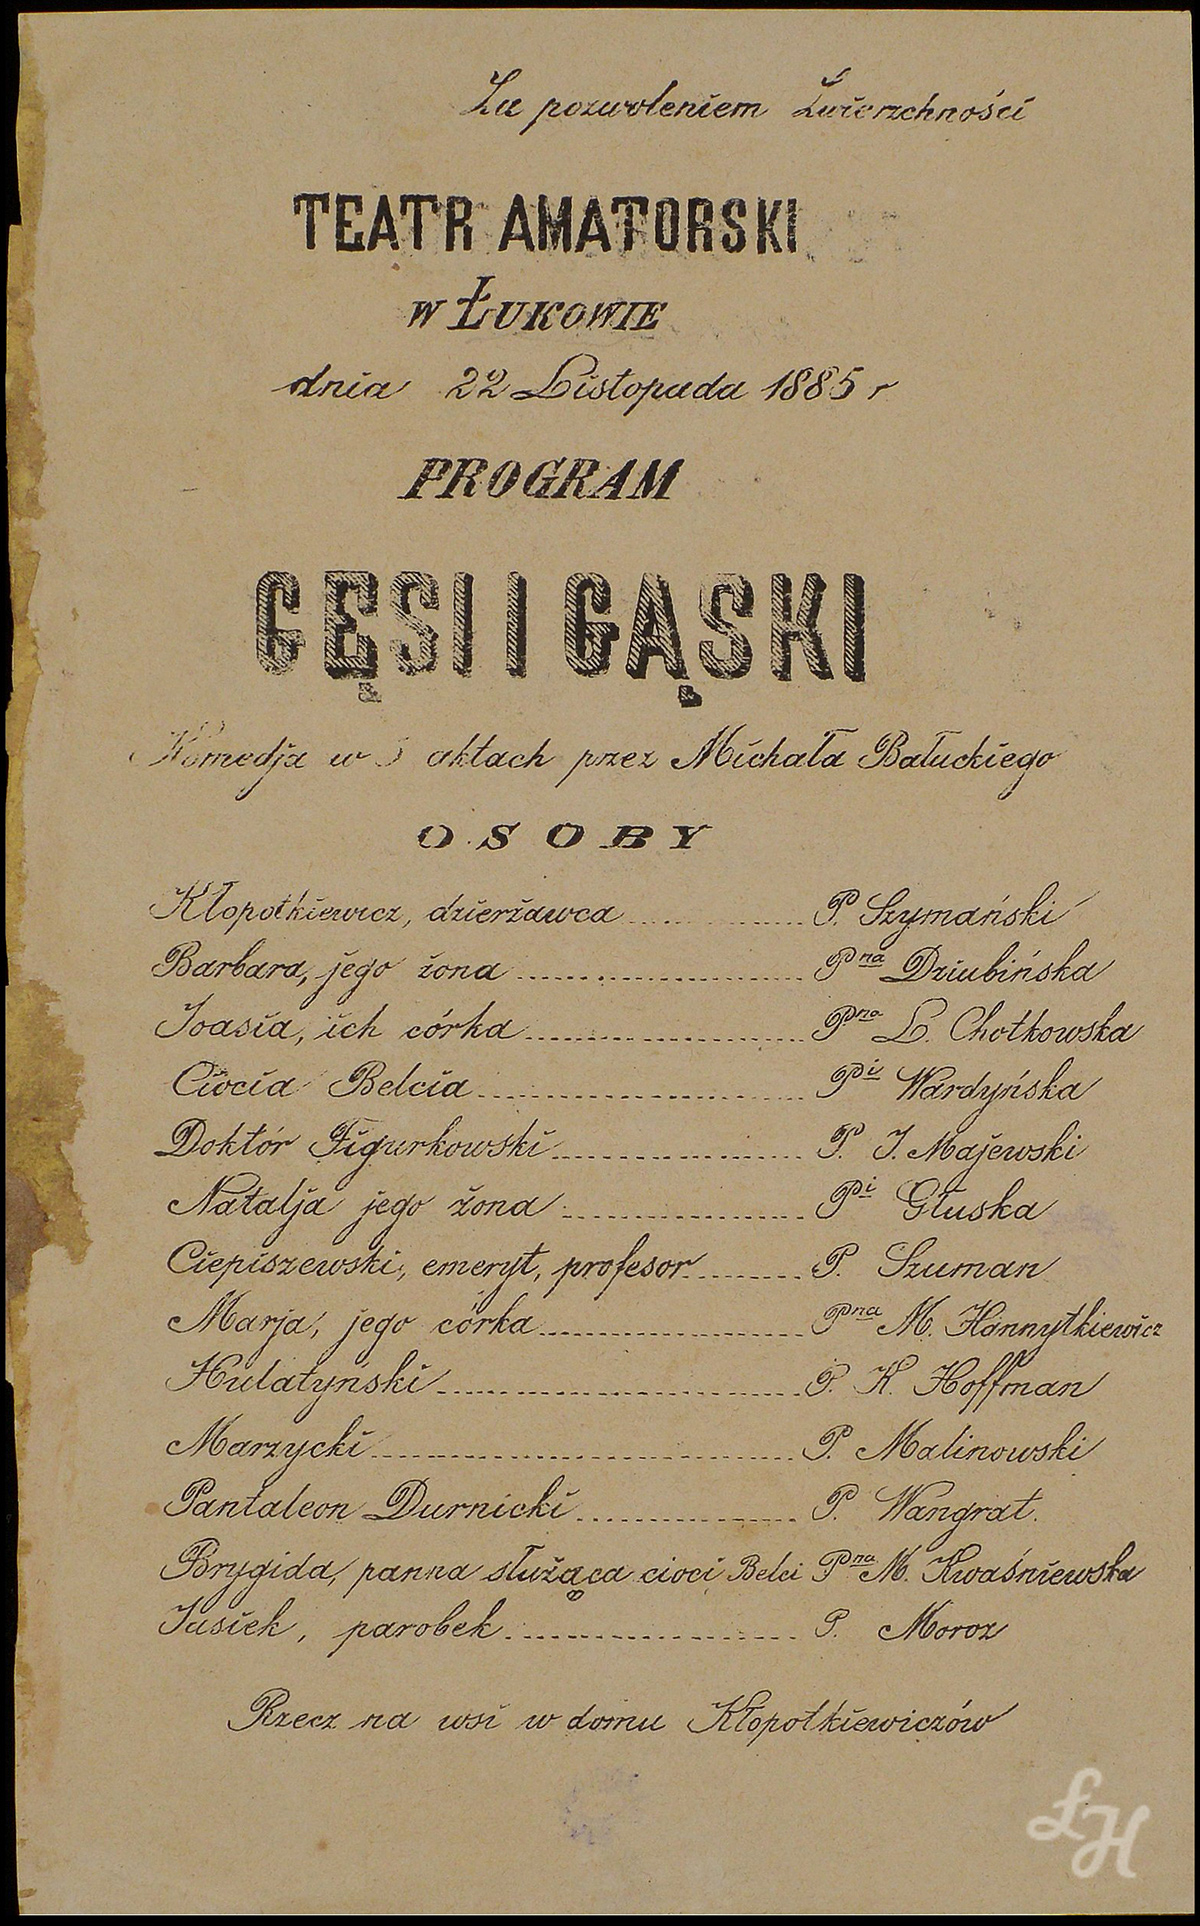 Za pozwoleniem Zwierzchności
TEATR AMATORSKI
W ŁUKOWIE
dnia 22 Listopada 1885 r
PROGRAM
GĘSI I GĄSKI
Komedja w 5 aktach przez Michała Bałuckiego
OSOBY
Kłopotkiewicz, dzierżawca P. Szymański
Barbara, jego żona Pna Dziubińska
Joasia, ich córka Pna L. Chotkowska
Ciocia Belcia Pi Wardyńska
Doktór Figurkowski P. J. Majewski
Natalja jego żona Pi Głuska
Ciepiszewski, emeryt, profesor P. Szuman
Marja, jego córka Pna M. Hannytkiewicz
Hulatyński P. K. Hoffman
Marzycki P. Malinowski
Pantaleon Durnicki P. Wangrat.
Brygida, panna służąca cioci Belci Pna M. Kwaśniewska
Jasiek, parobek P. Moroz
Rzecz na wsi w domu Kłopotkiewiczów
ŁH